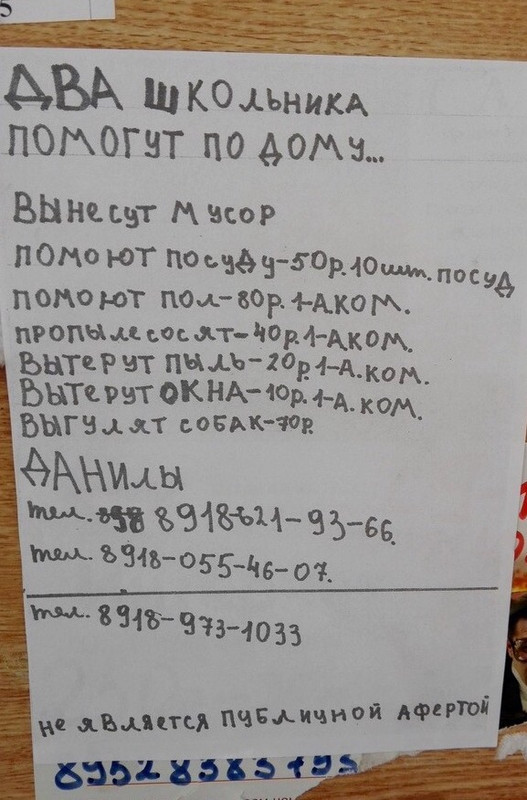 5
ДВА ШКОЛЬНИКА
ПОМОГУТ ПО ДОМУ...
ВЫНЕСУТ МУСОР
ПОМОЮТ ПОСУДУ-50р.10шт.ПОСУД
ПОМОЮТ ПОЛ-80р.1-А.КОМ.
ПРОПЫЛЕСОСЯТ-40р.1-А.КОМ.
ВЫТЕРУТ ПЫЛЬ-20р.1-А.КОМ.
ВЫТЕРУТ ОКНА-10р.1-А.КОМ.
ВЫГУЛЯТ СОБАК-70р.
ДАНИЛЫ
тел. 8918-621-93-66.
тел. 8918-055-46-07.
тел. 8918-973-1033
НЕ ЯВЛЯЕТСЯ ПУБЛИЧНОЙ АФЕРТОЙ